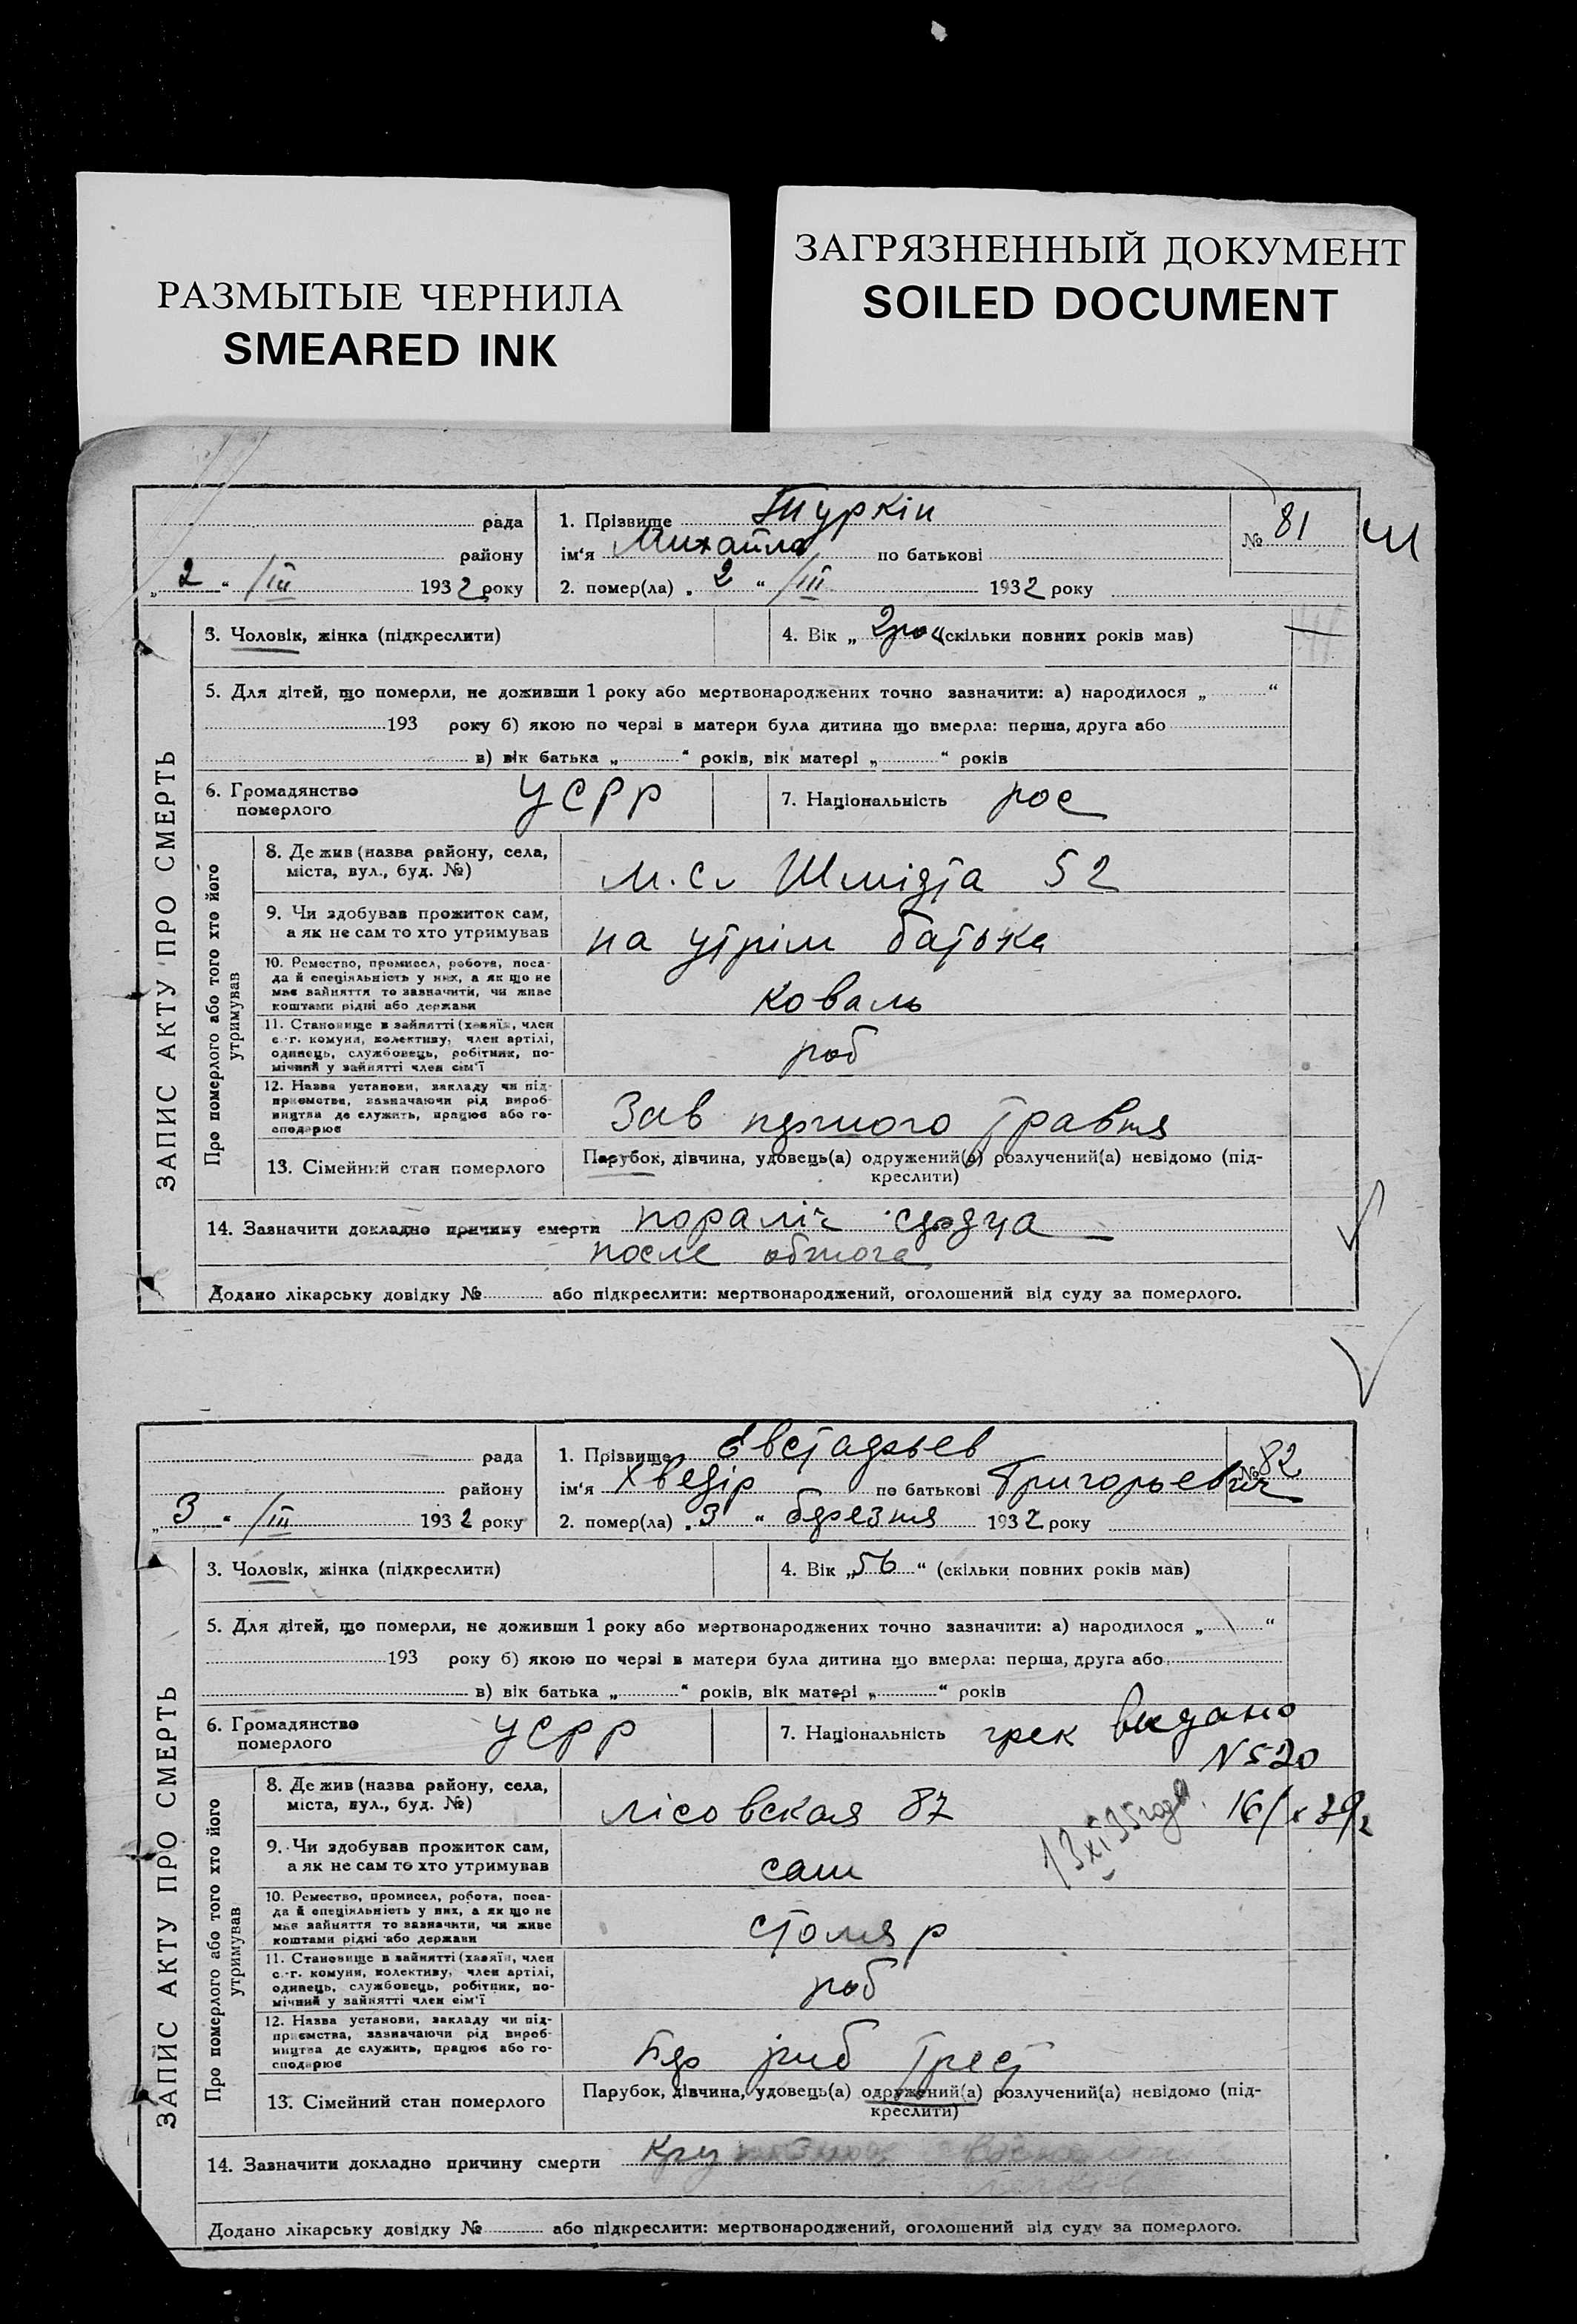 РАЗМЫТЫЕ ЧЕРНИЛА
SMEARED INK
ЗАГРЯЗНЕННЫЙ ДОКУМЕНТ
SOILED DOCUMENT
ЗАПИС АКТУ ПРО СМЕРТЬ
рада
району
„ 2 “ /III 1932 року
1. Прізвище Туркін
ім‘я Михайло по батькові
2. помер(ла) „ 2 “ /III 1932 року
№ 81
ЧІ
3. Чоловік, жінка (підкреслити)
4. Вік „ 2 ро “ (скільки повних років мав)
5. Для дітей, що померли, не доживши 1 року або мертвонароджених точно зазначити: а) народилося „ “
193 року б) якою по черзі в матери була дитина що вмерла: перша, друга або
в) вік батька „ “ років, вік матері „ “ років
6. Громадянство померлого УСРР
7. Національність рос
Про померлого або того хто його утримував
8. Де жив (назва району, села,
міста, вул., буд. №)
м.с. Шмідта 52
9. Чи здобував прожиток сам,
а як не сам то хто утримував
на утрім батька
10. Ремество, промисел, робота, поса-
да й спеціяльність у них, а як що не
має зайняття то зазначити, чи живе
коштами рідні або держави
коваль
11. Становище в зайнятті (хазяїн, член
с.-г. комуни, колективу, член артілі,
одинець, службовець, робітник, по-
мічний у зайнятті член сім'ї
роб
12. Назва установи, закладу чи під-
приємства, зазначаючи рід вироб-
ництва де служить, працює або го-
сподарює
Зав першого травня
13. Сімейний стан померлого
Парубок, дівчина, удовець(а) одружений(а) розлучений(а) невідомо (під-
креслити)
14. Зазначити докладно причину смерти пораліч сердца
после обжога
Додано лікарську довідку № або підкреслити: мертвонароджений, оголошений від суду за померлого.
ЗАПИС АКТУ ПРО СМЕРТЬ
рада
району
„ 3 “ /III 1932 року
1. Прізвище Євстафьев
ім‘я Хведір по батькові Григорьевич
2. помер(ла) „ 3 “ березня 1932 року
№ 82
3. Чоловік, жінка (підкреслити)
4. Вік „ 56 “ (скільки повних років мав)
5. Для дітей, що померли, не доживши 1 року або мертвонароджених точно зазначити: а) народилося „ “
193 року б) якою по черзі в матери була дитина що вмерла: перша, друга або
в) вік батька „ “ років, вік матері „ “ років
6. Громадянство померлого УСРР
7. Національність грек
видано
N 520
16/x 39
13 XI 35 года
Про померлого або того хто його утримував
8. Де жив (назва району, села,
міста, вул., буд. №)
лісовская 87
9. Чи здобував прожиток сам,
а як не сам то хто утримував
сам
10. Ремество, промисел, робота, поса-
да й спеціяльність у них, а як що не
має зайняття то зазначити, чи живе
коштами рідні або держави
столяр
11. Становище в зайнятті (хазяїн, член
с.-г. комуни, колективу, член артілі,
одинець, службовець, робітник, по-
мічний у зайнятті член сім'ї
роб
12. Назва установи, закладу чи під-
приємства, зазначаючи рід вироб-
ництва де служить, працює або го-
сподарює
риб трест
13. Сімейний стан померлого
Парубок, дівчина, удовець(а) одружений(а) розлучений(а) невідомо (під-
креслити)
14. Зазначити докладно причину смерти
Додано лікарську довідку № або підкреслити: мертвонароджений, оголошений від суду за померлого.